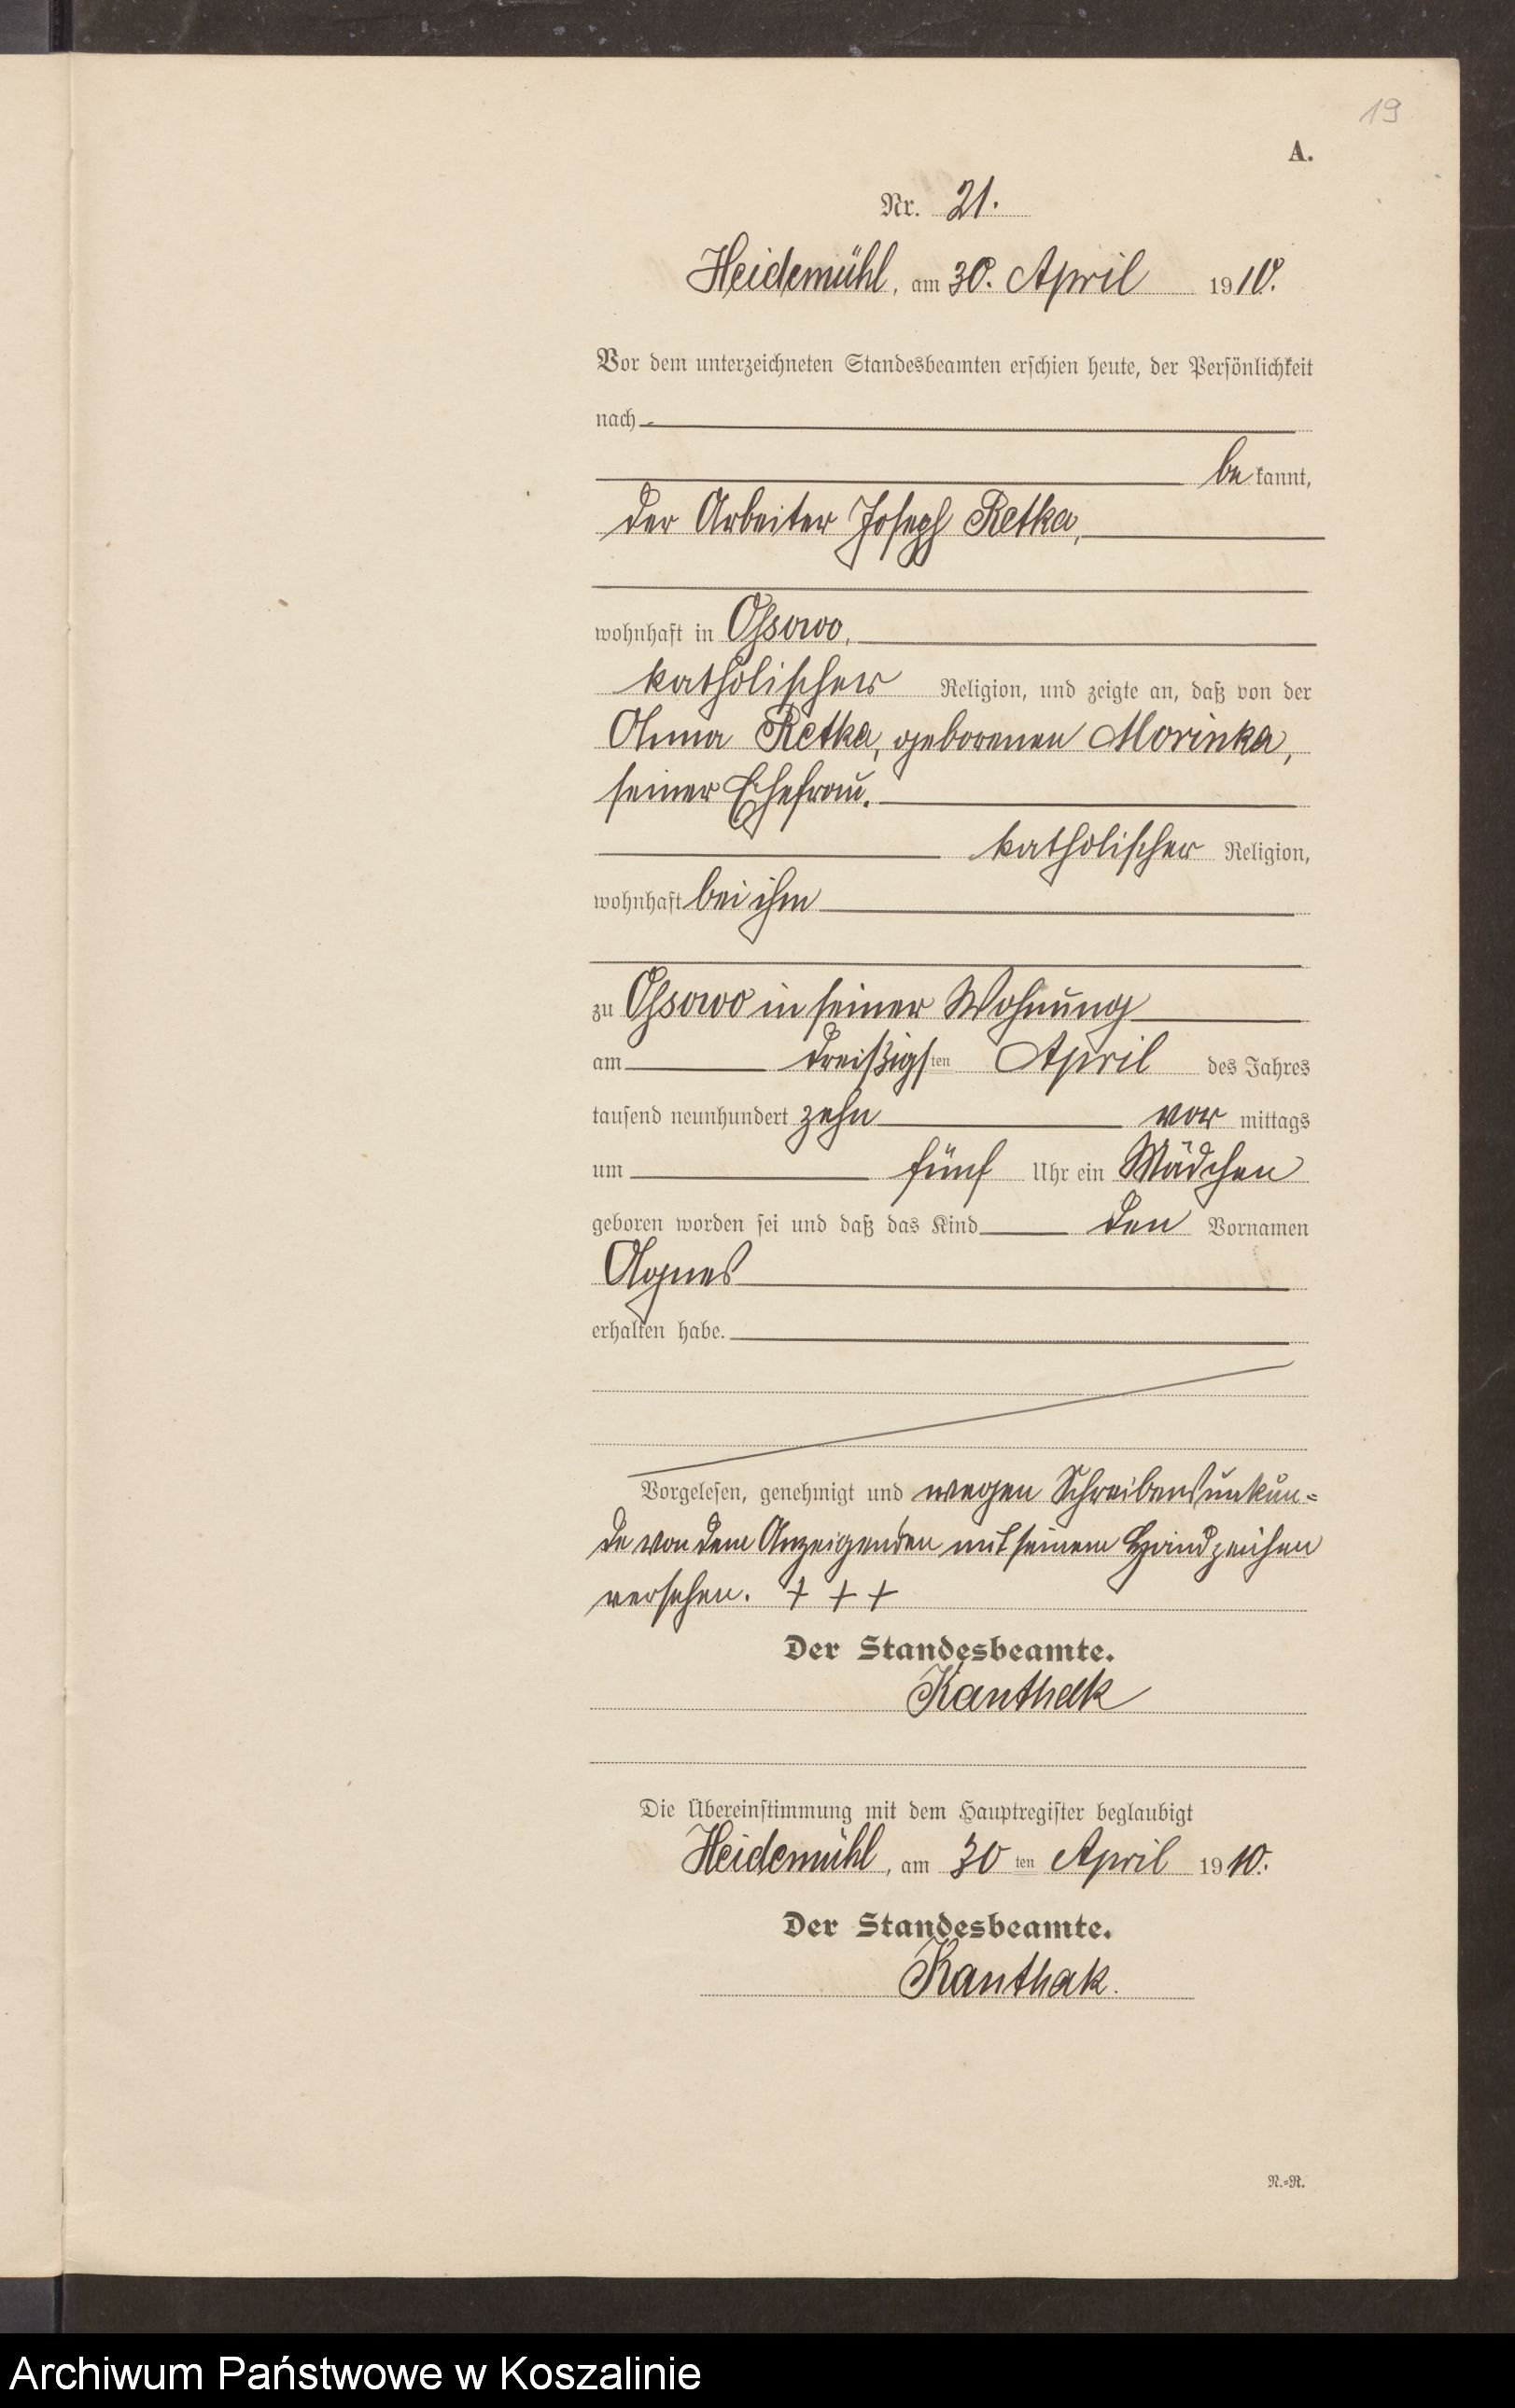 19
A.
Nr. 21.
Heidemühl, am 30. April 1910.
Vor dem unterzeichneten Standesbeamten erschien heute, der Persönlichkeit
nach
be kannt,
der Arbeiter Joseph Retka,
wohnhaft in Ossowo,
katholischer Religion, und zeigte an, daß von der
Anna Retka, geborenen Morinka,
seiner Ehefrau,
katholischer Religion,
wohnhaft bei ihm
zu Ossowo in seiner Wohnung
am dreißigsten April des Jahres
tausend neunhundert zehn vor mittags
um fünf Uhr ein Mädchen
geboren worden sei und daß das Kind den Vornamen
Agnes
erhalten habe.
Vorgelesen, genehmigt und wegen Schreibensunkun-
de von dem Anzeigenden mit seinem Handzeichen
versehen. + + +
Der Standesbeamte.
Kanthak
Die Übereinstimmung mit dem Hauptregister beglaubigt
Heidemühl, am 30 ten April 1910.
Der Standesbeamte.
Kanthak.
N.-R.
Archiwum Państwowe w Koszalinie